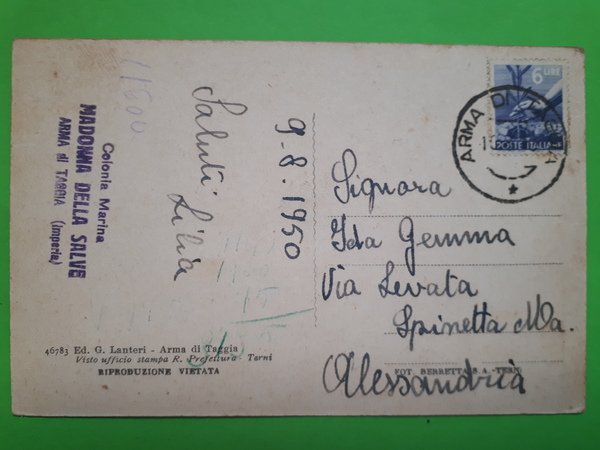 Colonia Marina
MADONNA DELLA SALVE
ARMA di TAGGIA (Imperia)
Saluti
Lilia
9-8.1950
46783 Ed. G. Lanteri - Arma di Taggia
Visto ufficio stampa R. Prefettura - Terni
RIPRODUZIONE VIETATA
6 LIRE
POSTE ITALIANE
ARMA DI TAGGIA
Signora
Ida Gemma
Via Levata
Spinetta Ma.
Alessandria
FOT. BERRETTA S.A. TERNI